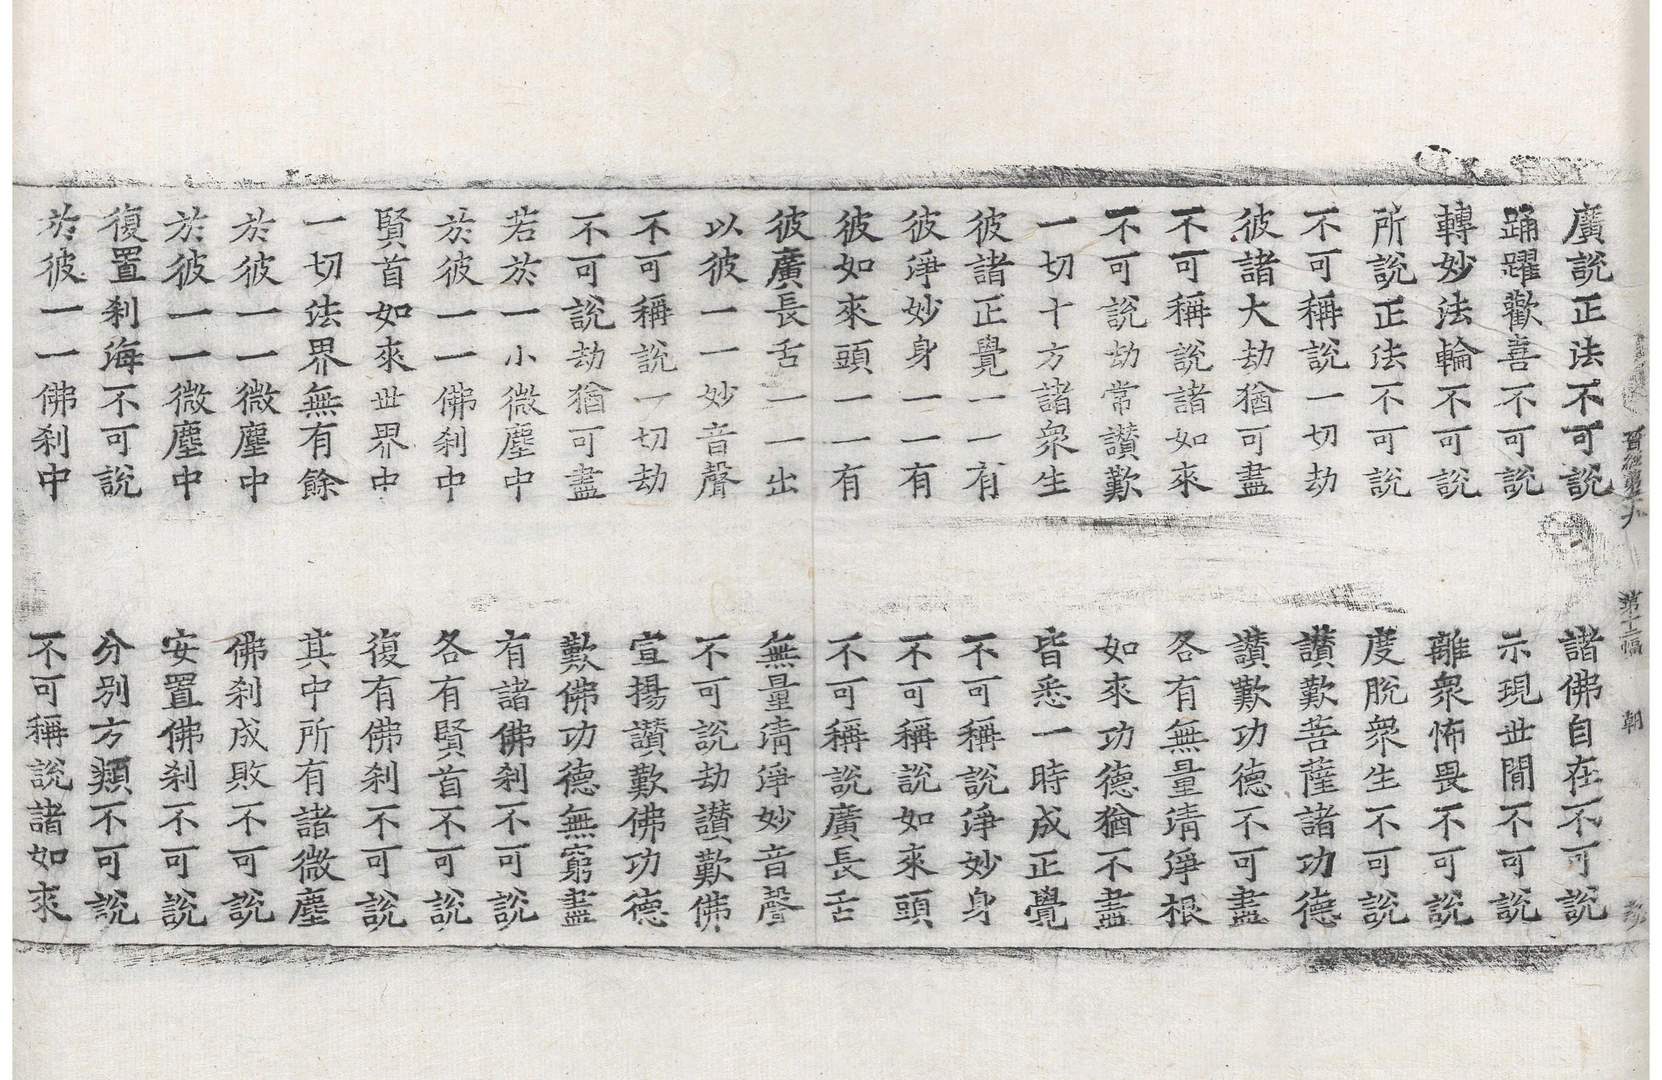 晉經第 第十 幅 朝
廣說正法不可說 諸佛自在不可說
踊躍歡喜不可說 示現世間不可說
轉妙法輪不可說 離衆怖畏不可說
所說正法不可說 度脫衆生不可說
不可稱說一切劫 讃歎菩薩諸功德
彼諸大劫猶可盡 讃歎功德不可盡
不可稱說諸如來 各有無量清淨根
不可說劫常讃歎 如來功德猶不盡
一切十方諸衆生 皆悉一時成正覺
彼諸正覺一一有 不可稱說淨妙身
彼淨妙身一一有 不可稱說如來頭
彼如來頭一一有 不可稱說廣長舌
彼廣長舌一一出 無量清淨妙音聲
以彼一一妙音聲 不可說劫讃歎佛
不可稱說一切劫 宣揚讃歎佛功德
不可說劫猶可盡 歎佛功德無窮盡
若於一小微塵中 有諸佛刹不可說
於彼一一佛刹中 各有賢首不可說
賢首如來世界中 復有佛刹不可說
一切法界無有餘 其中所有諸微塵
於彼一一微塵中 佛刹成敗不可說
於彼一一微塵中 安置佛刹不可說
復置刹海不可說 分別方類不可說
於彼一一佛刹中 不可稱說諸如來